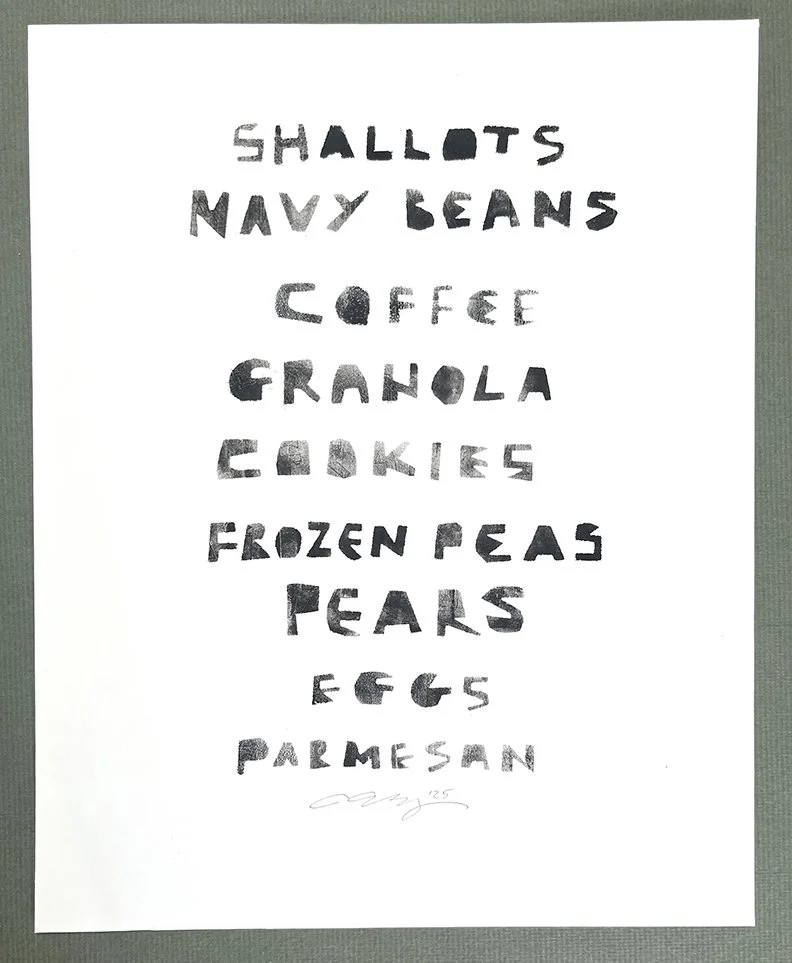 SHALLOTS
NAVY BEANS
COFFEE
GRANOLA
COOKIES
FROZEN PEAS
PEARS
EGGS
PARMESAN
'25